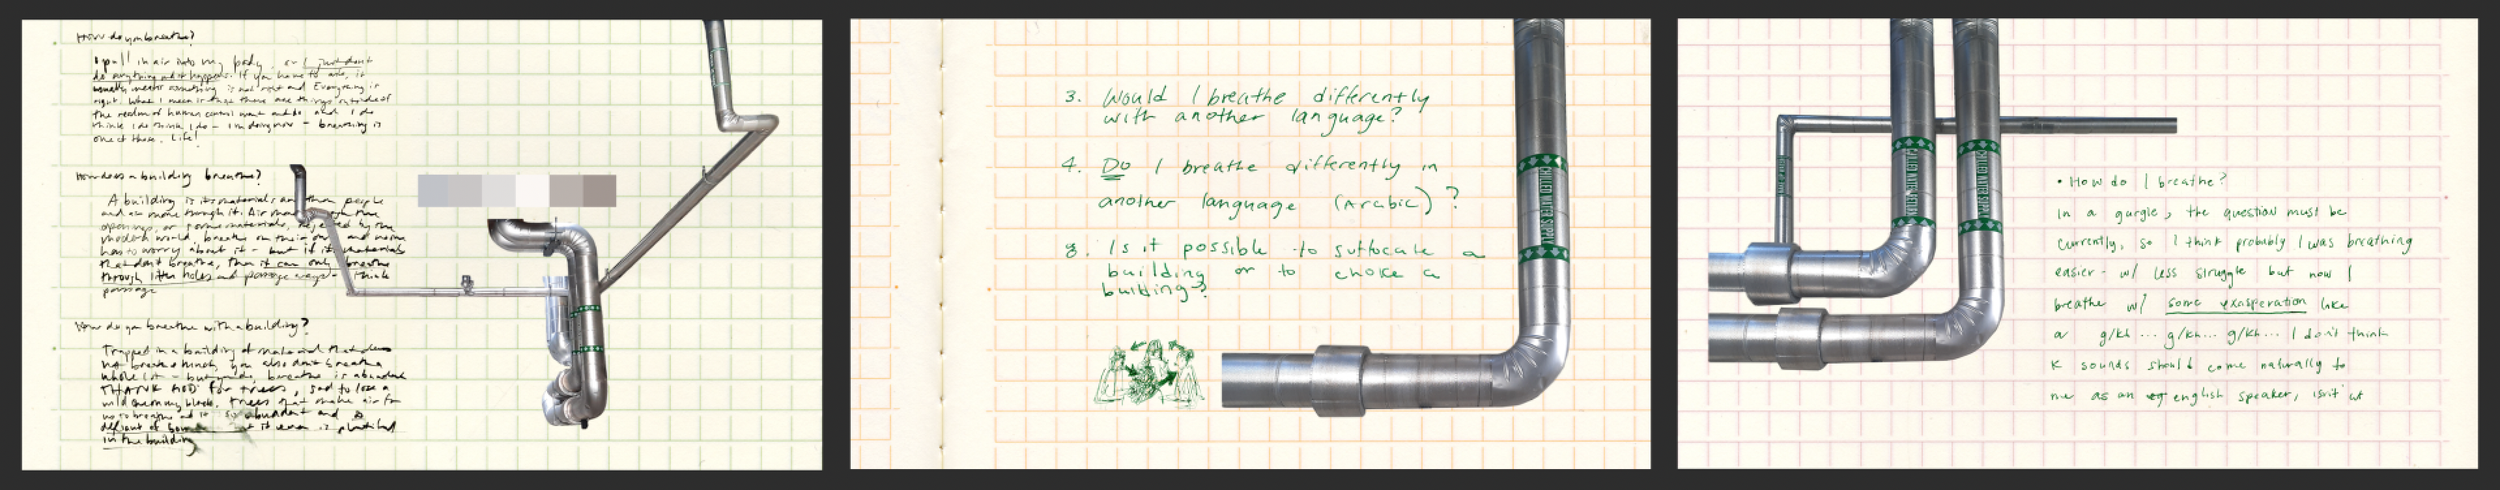 How do you breathe?
I pull in air into my body, or I just don't
do anything and it happens. If you have to ask, it
usually means something is not right and Everything is
right. What I mean is that there are things outside of
the realm of human control want and do and I do
think I do think I do - I'm doing now - breathing is
one of those. Life!
How does a building breathe?
A building is its materials and then people
and air move through it. Air moves through the
openings, or some materials, rejected by the
modern world, breathe on their own and no one
has to worry about it - but if it material
that don't breathe, then it can only breathe
through little holes and passage ways - think
passage
How do you breathe with a building?
Trapped in a building of material that does
not breathe much, you also don't breathe a
whole lot - but outside, breathe is abundant
THANK GOD for trees, sad to lose a
wild cherry black. Trees that make air for
us to breathe and it so abundant and
defiant of it even is
in the building
3. Would I breathe differently
with another language?
4. Do I breathe differently in
another language (Arabic)?
8. Is it possible to suffocate a
building or to choke a
building?
CHILLED WATER SUPPLY
CHILLED WATER RETURN
CHILLED WATER SUPPLY
• How do I breathe?
In a gurgle, the question must be
currently, so I think probably I was breathing
easier - w/ less struggle but now I
breathe w/ some exasperation like
a g/kh... g/kh... g/kh... I don't think
K sounds should come naturally to
me as an english speaker, isn't it